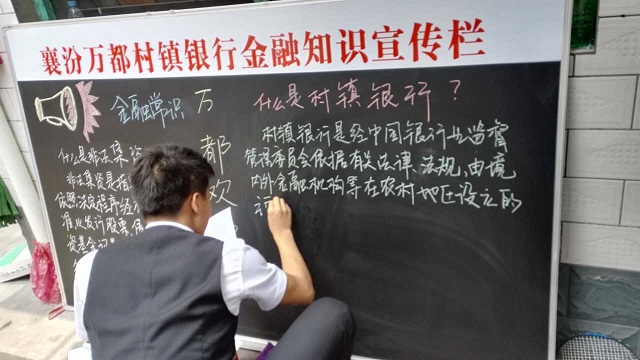 襄汾万都村镇银行金融知识宣传栏
金融常识
什么是非法集资
非法集资是指
依照法定程序经
准以发行股票、债
资基金
万
都
欢
什么是村镇银行？
村镇银行是经中国银行业监督
管理委员会依据有关法律、法规,由境
内外金融机构等在农村地区设立的